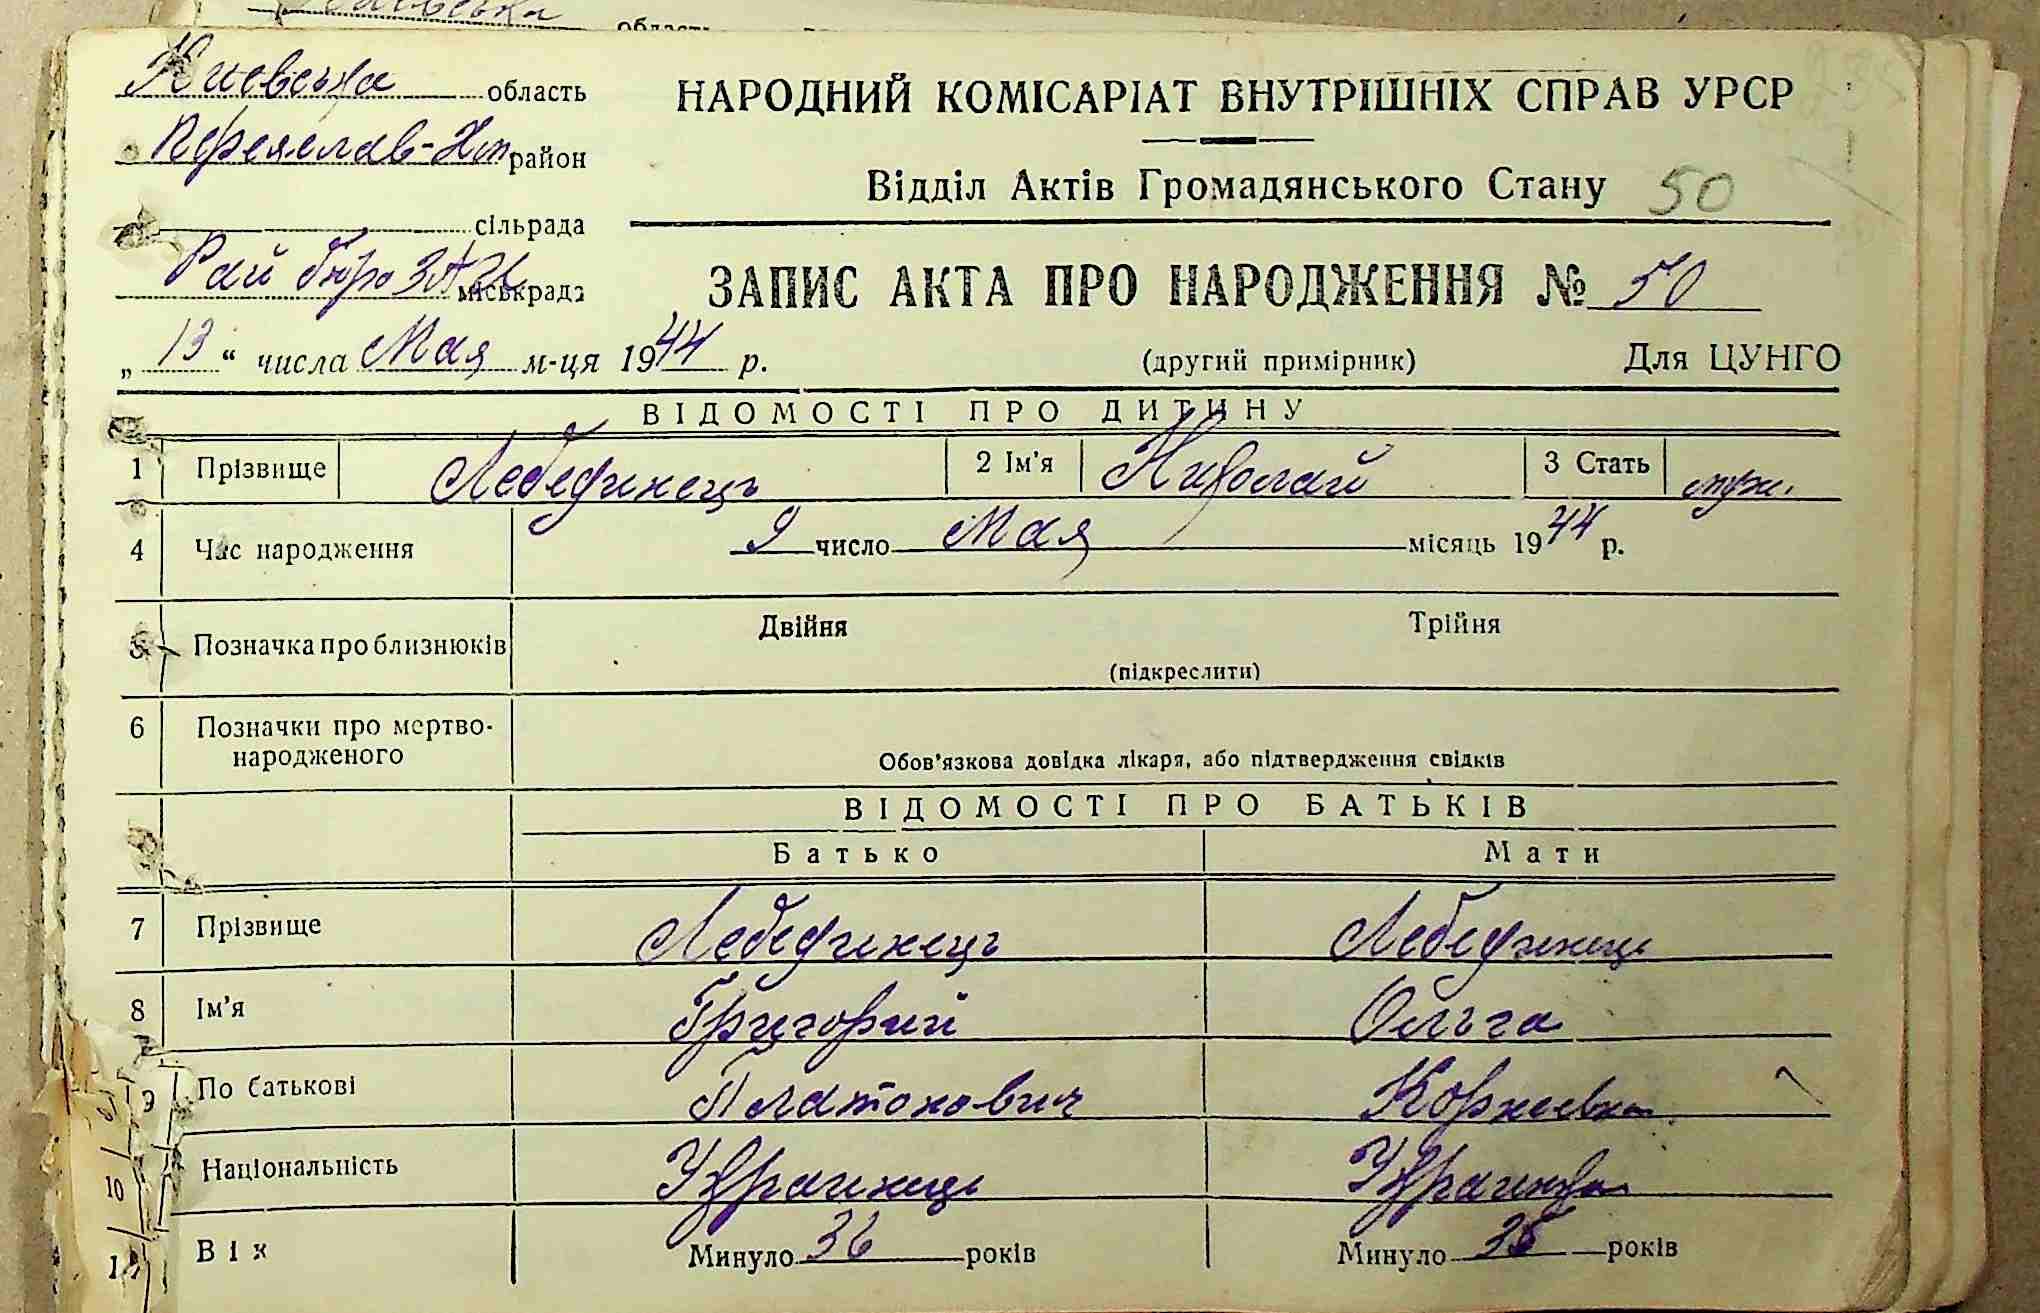 Киевська область
НАРОДНИЙ КОМІСАРІАТ ВНУТРІШНІХ СПРАВ УРСР
Переяслав-Хм район
Відділ Актів Громадянського Стану 50
сільрада
Рай бюро ЗАГС міськрада
ЗАПИС АКТА ПРО НАРОДЖЕННЯ № 50
„13“ числа Мая м-ця 1944 р.
(другий примірник) Для ЦУНГО
ВІДОМОСТІ ПРО ДИТИНУ
1 Прізвище Лебединець 2 Ім'я Николай 3 Стать муж.
4 Час народження 9 число Мая місяць 1944 р.
5 Позначка про близнюків Двійня Трійня
(підкреслити)
6 Позначки про мертво-
народженого
Обов'язкова довідка лікаря, або підтвердження свідків
ВІДОМОСТІ ПРО БАТЬКІВ
Батько Мати
7 Прізвище Лебединець Лебединець
8 Ім'я Григорий Ольга
9 По батькові Платонович Корнеевна
10 Національність Украинець Украинка
11 Вік Минуло 36 років Минуло 35 років